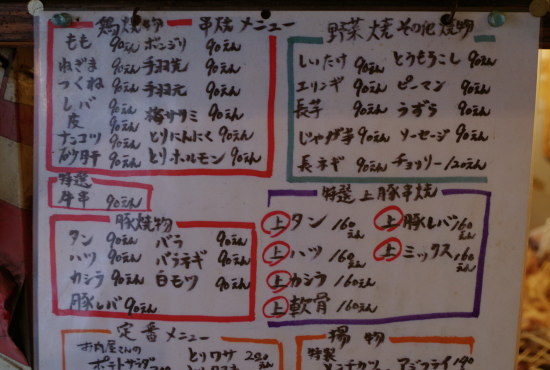 鶏焼物 串焼メニュー
もも 90えん ボンジリ 90えん
ねぎま 90えん 手羽先 90えん
つくね 90えん 手羽元 90えん
レバ 90えん 梅ササミ 90えん
皮 90えん
ナンコツ 90えん とりにんにく 90えん
砂肝 90えん とりホルモン 90えん
特選
牛串 90えん
野菜焼その他焼物
しいたけ 90えん とうもろこし 90えん
エリンギ 90えん ピーマン 90えん
長芋 90えん うずら 90えん
じゃが芋 90えん ソーセージ 90えん
長ネギ 90えん チョリソー 120えん
豚焼物
タン 90えん バラ 90えん
ハツ 90えん バラネギ 90えん
カシラ 90えん 白モツ 90えん
豚レバ 90えん
特選 上豚串焼
上タン 160えん 上豚レバ 160えん
上ハツ 160えん 上ミックス 160えん
上カシラ 160えん
上軟骨 160えん
定番メニュー
お肉屋さんの
ポテトサラダ とりワサ 250えん
揚物
特製
メンチカツ アジフライ 190